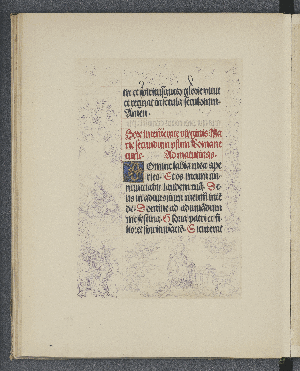 ne et spiritusancto glorie vivit
et regnat in secula seculorum.
Amen.
Hore intemerate virginis Ma
rie secundum usum Romane
curie. Ad matutinas.
Domine labia mea ape
ries. Et os meum an
nunciabit laudem tuã. De
us in adiutorium meum inten
de. Domine ad adiuvandum
me festina. Gloria patri et fi
lio: et spiritui sancto. Sicut erat